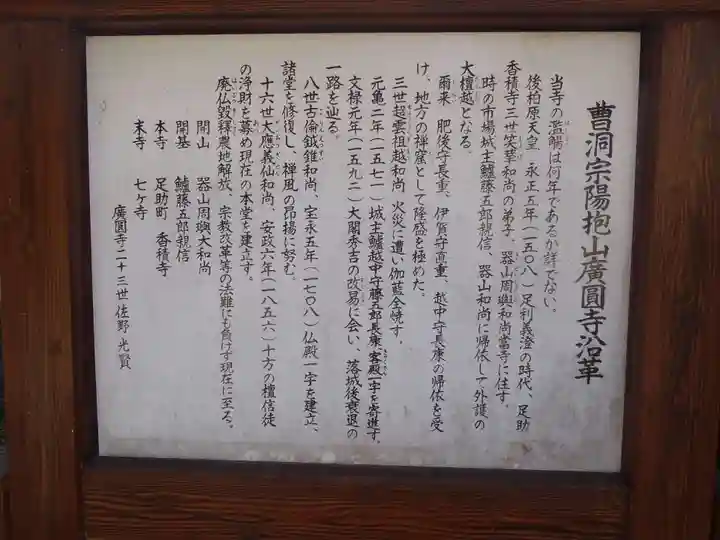 曹洞宗陽抱山廣圓寺沿革
当寺の濫觴は何年であるか詳でない。
後柏原天皇、永正五年（一五〇八）足利義澄の時代、足助
香積寺三世笑拳和尚の弟子、器山周輿和尚當寺に住す。
時の市場城主鱸藤五郎親信、器山和尚に帰依して外護の
大檀越となる。
爾来、肥後守長重、伊賀守直重、越中守長康の帰依を受
け、地方の禅窟として隆盛を極めた。
三世超雲祖越和尚、火災に遭い伽藍全焼す。
元亀二年（一五七一）城主鱸越中守藤五郎長康、客殿一宇を寄進す。
文禄元年（一五九二）大閤秀吉の改易に会い、落城後衰退の
一路を辿る。
八世古倫鉞錐和尚、宝永五年（一七〇八）仏殿一宇を建立、
諸堂を修復し、禅風の昂揚に努む。
十六世大應義仙和尚、安政六年（一八五六）十方の檀信徒
の浄財を募め現在の本堂を建立す。
廃仏毀釋農地解放、宗教改革等の法難にも負けず現在に至る。
開山　器山周輿大和尚
開基　鱸藤五郎親信
本寺　足助町　香積寺
末寺　七ヶ寺
廣圓寺二十三世佐野光賢